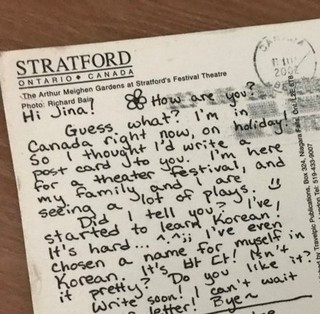 STRATFORD
ONTARIO • CANADA
The Arthur Meighen Gardens at Stratford's Festival Theatre
Photo: Richard Bain
Hi Jina! How are you?
Guess what? I'm in
Canada right now, on holiday!
So I thought I'd write a
post card to you. I'm here
for a theater festival, and
my family and I are
seeing a lot of plays.
Did I tell you? I've
started to learn Korean!
It's hard... ^.^;; I've even
chosen a name for myself in
Korean. It's
it pretty? Do you like it? Isn't
Write soon! I can't wait
a letter! Bye~
2002
Box 324, Niagara
519-433-9007